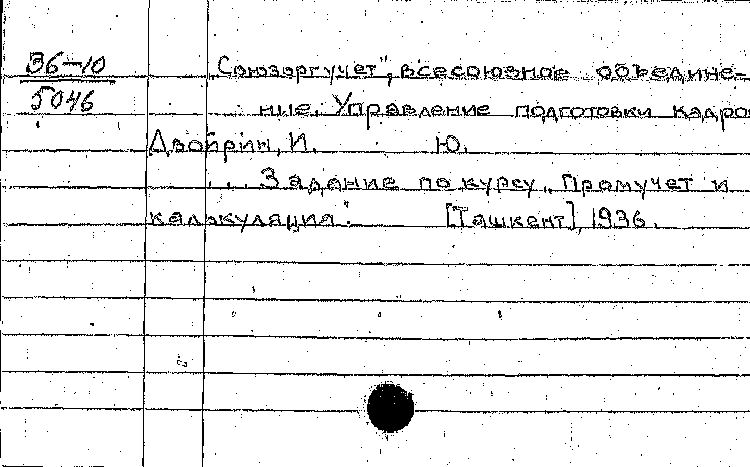 36-10
5046
„Союзоргучет", всесоюзное объедине-
ние. Управление подготовки кадро
Двойрин, И. Ю.
... Задание по курсу „Промучет и
калькуляция". [Ташкент], 1936.